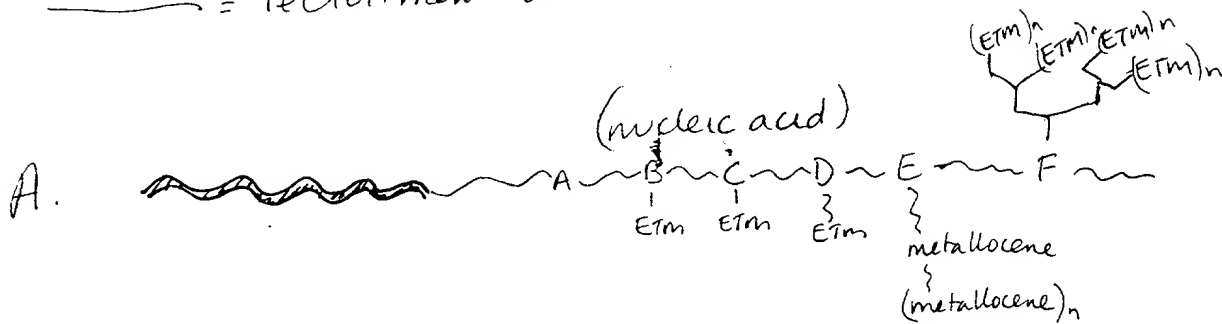 =
(ETM)n (ETM)n (ETM)n
(ETM)n
(nucleic acid)
A. A B C D E F
ETM ETM ETM
metallocene
(metallocene)n